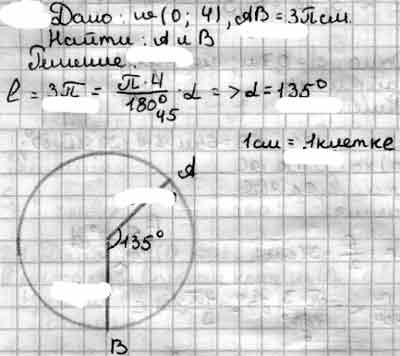 Дано: w (0; 4), AB = 3π см.
Найти: A и B
Решение:
l = 3π = π·4 / 180° 45 · α => α = 135°
1 см = 1 клетке
A
135°
B